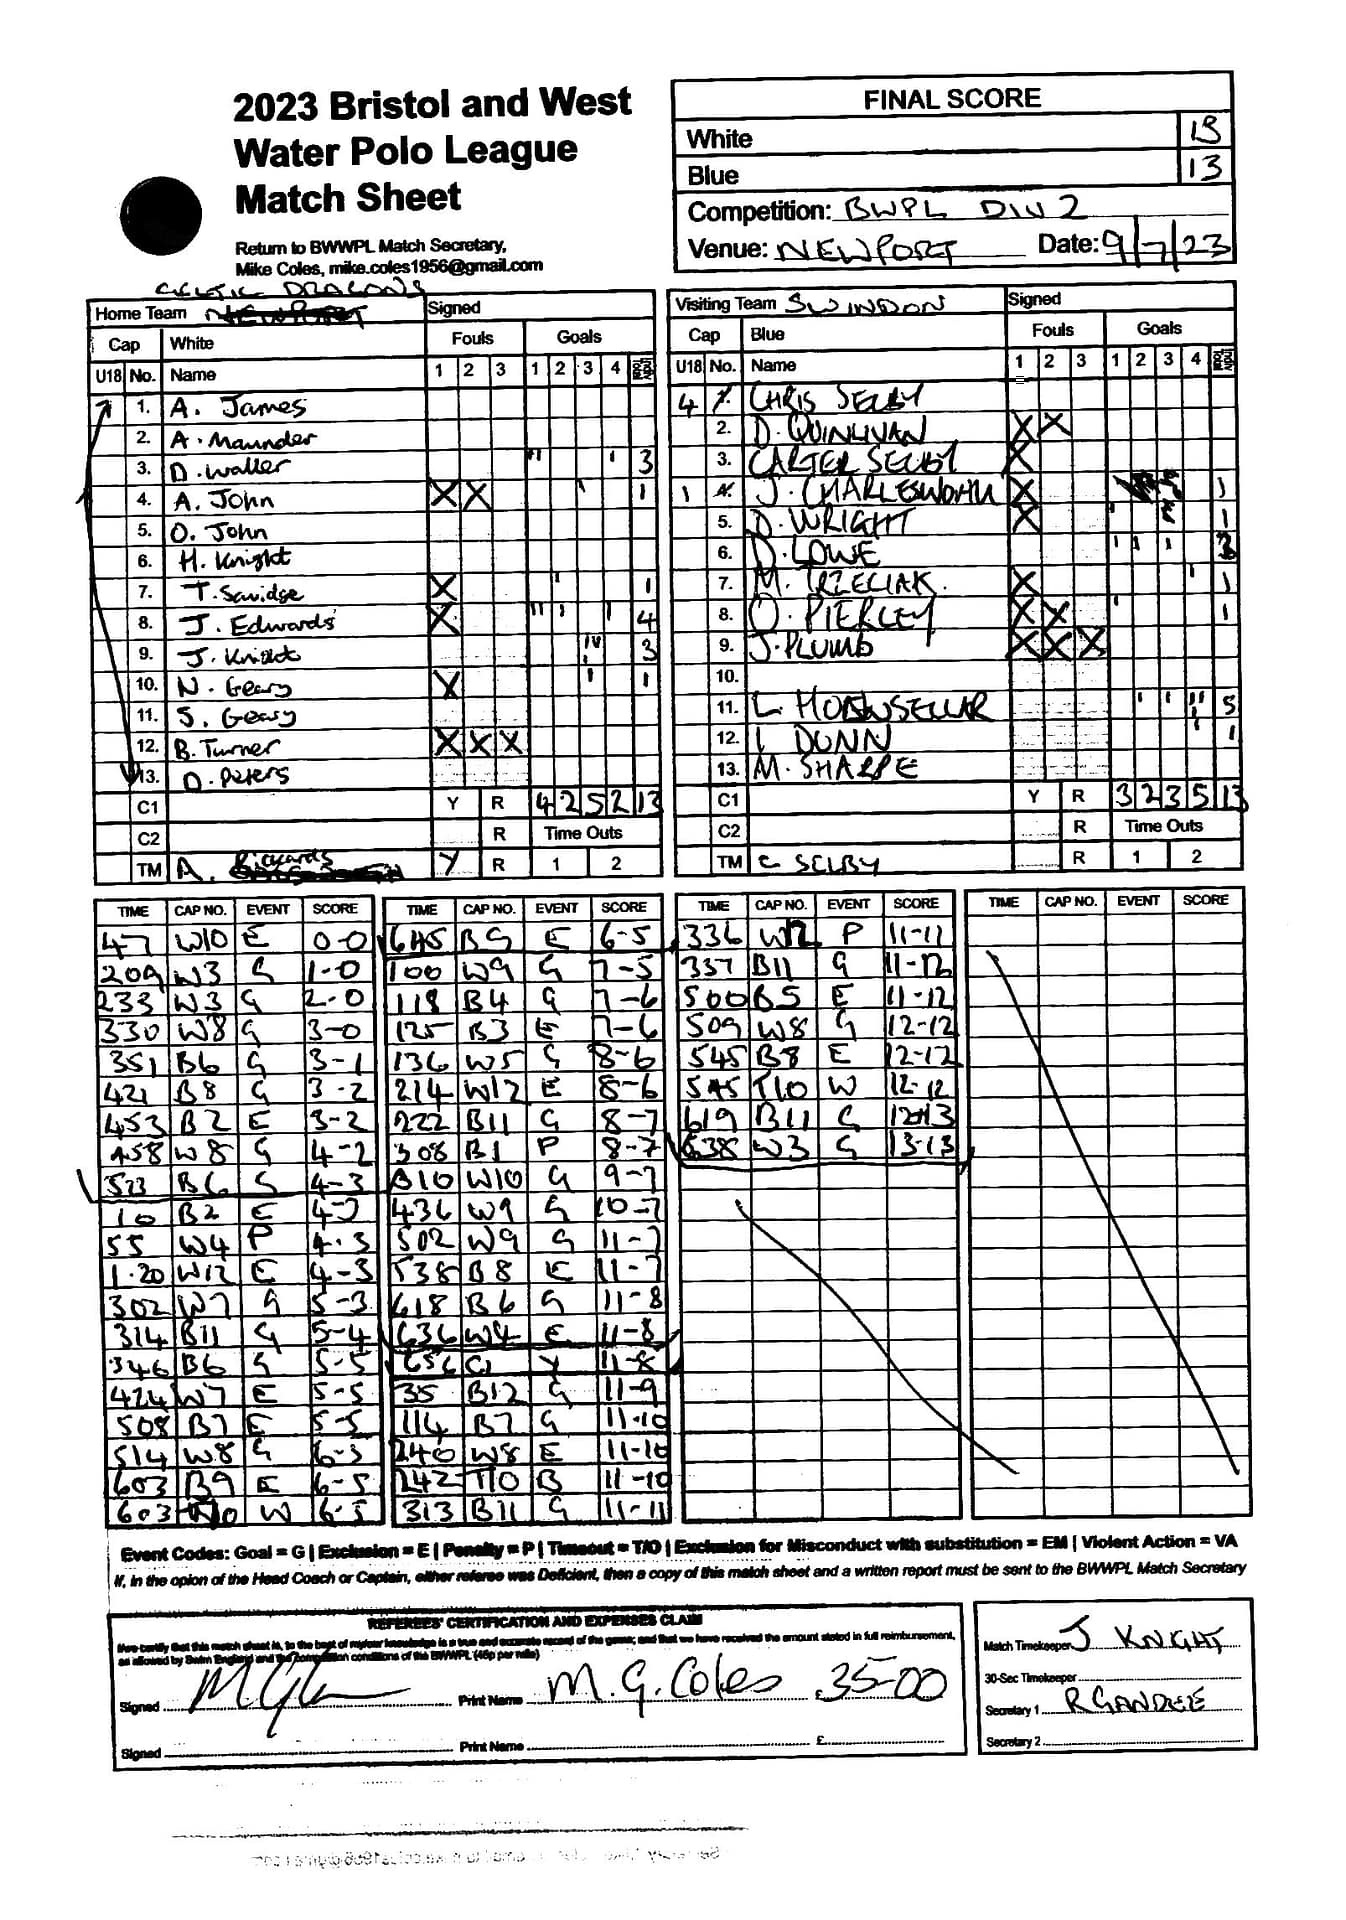 2023 Bristol and West
Water Polo League
Match Sheet
Return to BWWPL Match Secretary,
Mike Coles, mike.coles1956@gmail.com
FINAL SCORE
White 13
Blue 13
Competition: BWPL DIV 2
Venue: NEWPORT Date: 9/7/23
CELTIC DRAGONS
Home Team NEWPORT Signed
Cap White Fouls Goals
U18 No. Name 1 2 3 1 2 3 4
1. A. James
2. A. Maunder
3. D. Waller 3
4. A. John X X 1
5. O. John
6. H. Knight
7. T. Savidge X 1
8. J. Edwards X 4
9. J. Knight 3
10. N. Geary X 1
11. S. Geary
12. B. Turner X X X
13. D. Peters
C1 Y R 4 2 5 2 13
C2 R Time Outs
TM A. Rickards Y R 1 2
Visiting Team SWINDON Signed
Cap Blue Fouls Goals
U18 No. Name 1 2 3 1 2 3 4
4 1. CHRIS SELBY
2. D. QUINLIVAN X X
3. CARTER SELBY X
1 4. J. CHARLESWORTH X 1
5. D. WRIGHT X 1
6. D. LOWE 3
7. M. TRZECIAK X 1
8. O. PIERLEY X X 1
9. J. PLUMB X X X
10.
11. L. 5
12. L DUNN 1
13. M. SHARPE
C1 Y R 3 2 3 5 13
C2 R Time Outs
TM C SELBY R 1 2
TIME CAP NO. EVENT SCORE
47 W10 E 0-0
209 W3 G 1-0
233 W3 G 2-0
330 W8 G 3-0
351 B6 G 3-1
421 B8 G 3-2
453 B2 E 3-2
458 W8 G 4-2
523 B6 G 4-3
10 B2 E 4-3
55 W4 P 4-3
1.20 W12 E 4-3
302 W7 G 5-3
314 B11 G 5-4
346 B6 G 5-5
424 W7 E 5-5
508 B7 E 5-5
514 W8 G 6-5
603 B9 E 6-5
603 T/O W 6-5
TIME CAP NO. EVENT SCORE
645 B9 E 6-5
100 W9 G 7-5
118 B4 G 7-6
125 B3 E 7-6
136 W5 G 8-6
214 W12 E 8-6
222 B11 G 8-7
308 B1 P 8-7
310 W10 G 9-7
436 W9 G 10-7
502 W9 G 11-7
538 B8 E 11-7
618 B6 G 11-8
636 W4 E 11-8
656 C1 Y 11-8
35 B12 G 11-9
114 B7 G 11-10
240 W8 E 11-10
242 T/O B 11-10
313 B11 G 11-11
TIME CAP NO. EVENT SCORE
336 W12 P 11-11
337 B11 G 11-12
500 B5 E 11-12
509 W8 G 12-12
545 B8 E 12-12
545 T/O W 12-12
619 B11 G 12-13
638 W3 G 13-13
TIME CAP NO. EVENT SCORE
Event Codes: Goal = G | Exclusion = E | Penalty = P | Timeout = T/O | Exclusion for Misconduct with substitution = EM | Violent Action = VA
If, in the opion of the Head Coach or Captain, either referee was Deficient, then a copy of this match sheet and a written report must be sent to the BWWPL Match Secretary
REFEREES' CERTIFICATION AND EXPENSES CLAIM
I/we certify that this match sheet is, to the best of my/our knowledge is a true and accurate record of the game; and that we have received the amount stated in full reimbursement,
as allowed by Swim England and the competition conditions of the BWWPL (45p per mile)
Signed Print Name M. G. Coles £ 35-00
Signed Print Name £
Match Timekeeper J KNIGHT
30-Sec Timekeeper
Secretary 1 R GANDEE
Secretary 2